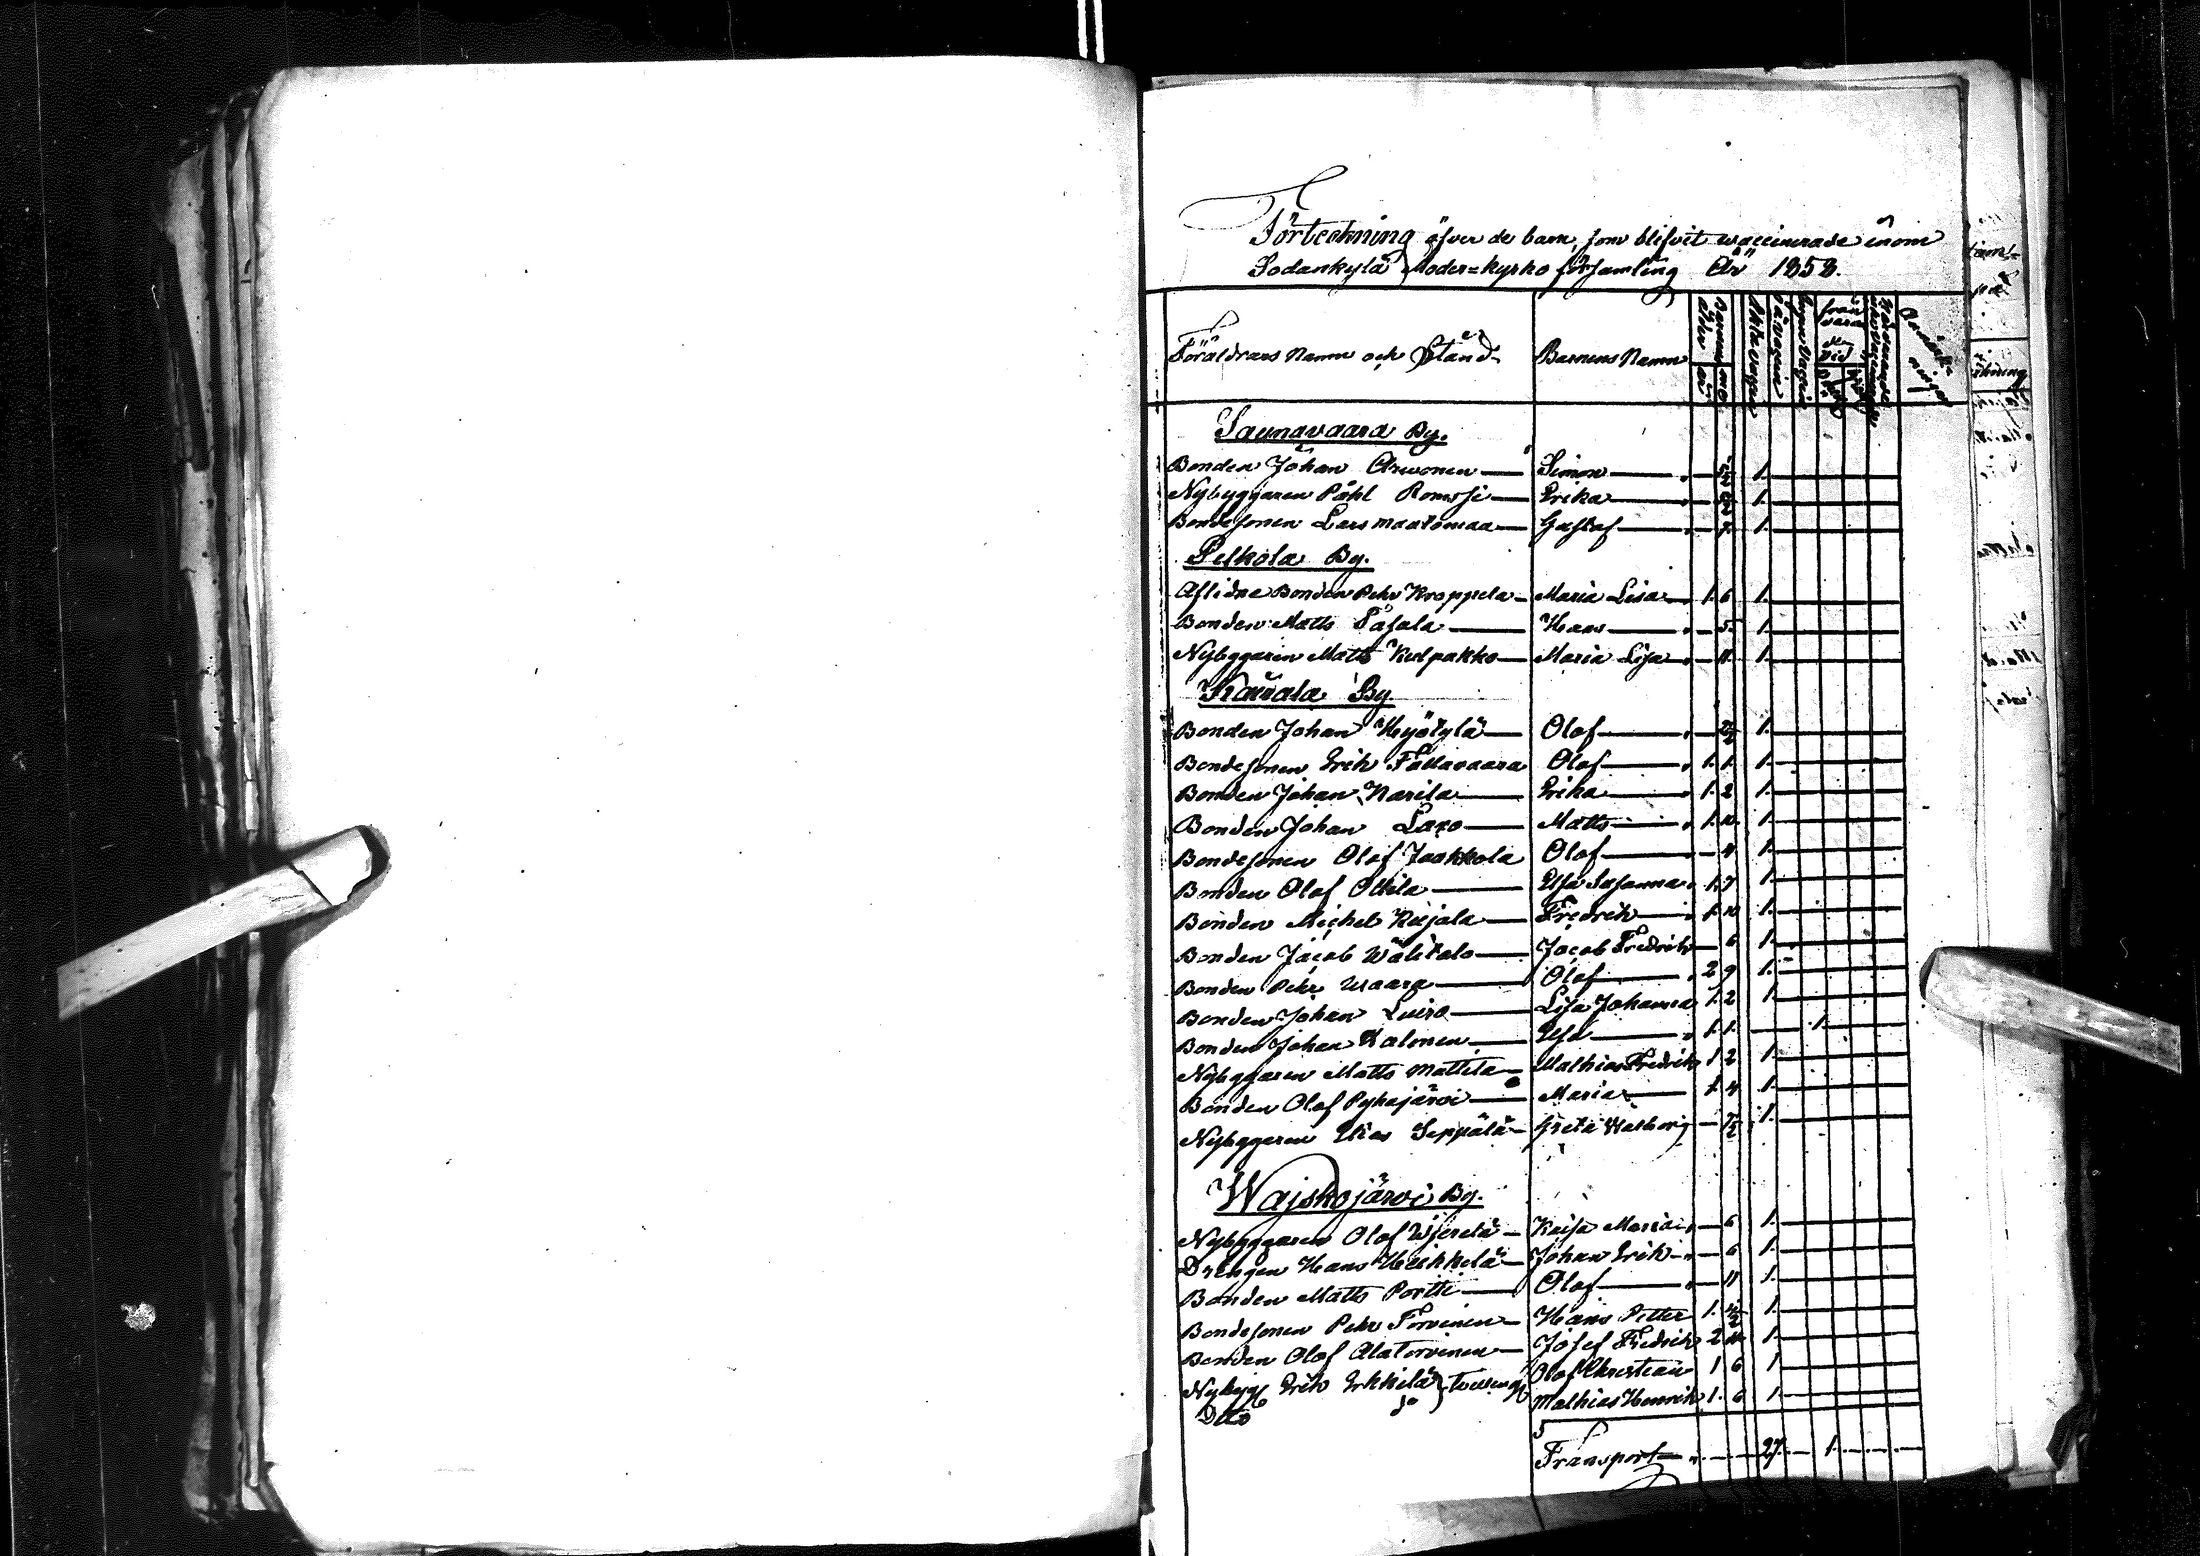 Förteckning öfver de barn, som blifvit waccinerade inom
Sodankylä Moder=kyrko församling År 1858.
Föräldrars Namn och Stånd Barnens Namn Barnens ålder år mo
Saunavaara By.
Bonden Johan Arwonen — Simon — 5½ 1.
Nybyggaren Påhl Romsi — Erika — 5½ 1.
Bondesonen Lars Maatomaa — Gustaf — 7. 1.
Pelkola By.
Aflidne Bonden Pehr Kroppela — Maria Lisa 1. 6 1.
Bonden Matts Tåfala — Hans — 5. 1.
Nybyggaren Matts Kulpakko — Maria Lisa — 11. 1.
Kairala By
Bonden Johan Hyötylä — Olof — 1.
Bondesonen Erik Tallavaara Olof — 1. 1. 1.
Bonden Johan Karila — Erika — 1. 2 1.
Bonden Johan Laxo — Matts — 1. 10. 1.
Bondesonen Olof Jaakkola Olof — 4 1.
Bonden Olof Ollila — Elsa Susanna 1. 7 1.
Bonden Michel Kujala — Fredrik — 1. 10 1.
Bonden Jacob Wälitalo — Jacob Fredrik — 6 1.
Bonden Pehr Waara — Olof — 2 9 1.
Bonden Johan Luiro — Lisa Johanna 1. 2 1.
Bonden Johan Halonen — Elsa — 1. 1. — 1.
Nybyggaren Matts Mattila — Mathias Fredrik 1. 2 1.
Bonden Olof Pyhajärvi — Maria — 1. 4 1.
Nybyggaren Elias Seppälä — Greta Walborg — 1.
Wajskojärvi By.
Nybyggaren Olof — Kaisa Maria — 6 1.
Drängen Hans Heikkilä — Johan Erik — 6 1.
Bonden Matts Portti — Olof — 11 1.
Bondesonen Pehr Torvinen — Hans Petter 1. 4½ 1.
Bonden Olof Alatorvinen — Josef Fredrik 2 1.
Nybygg Erik Erkkilä Olof Christian 1 6 1
Ditto do Mathias Henrik 1. 6 1.
Transport — 27. — 1.